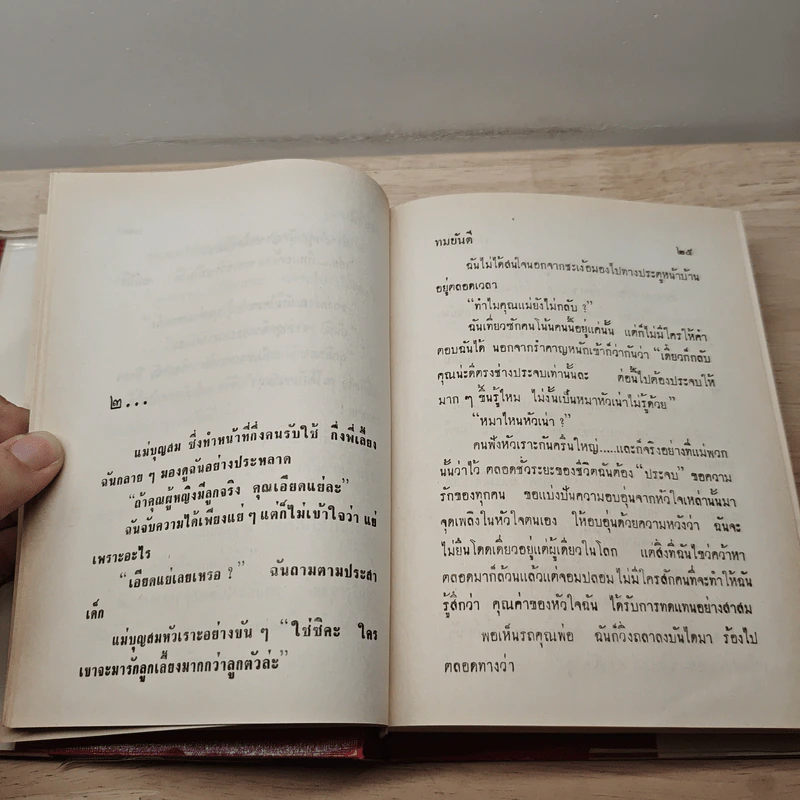 ๒...
แม่บุญสม ซึ่งทำหน้าที่กึ่งคนรับใช้ กึ่งพี่เลี้ยง
ฉันกลาย ๆ มองดูฉันอย่างประหลาด
“ถ้าคุณผู้หญิงมีลูกจริง คุณเอียดแย่ละ”
ฉันจับความได้เพียงแย่ ๆ แต่ก็ไม่เข้าใจว่า แย่
เพราะอะไร
“เอียดแย่เลยเหรอ ?” ฉันถามตามประสา
เด็ก
แม่บุญสมหัวเราะอย่างขัน ๆ “ใช่ซิคะ ใคร
เขาจะมารักลูกเลี้ยงมากกว่าลูกตัวล่ะ”
ทมยันตี
๒๕
ฉันไม่ได้สนใจนอกจากชะเง้อมองไปทางประตูหน้าบ้าน
อยู่ตลอดเวลา
“ทำไมคุณแม่ยังไม่กลับ ?”
ฉันเที่ยวซักคนโน้นคนนี้อยู่แค่นั้น แต่ก็ไม่มีใครให้คำ
ตอบฉันได้ นอกจากรำคาญหนักเข้าก็ว่ากันว่า “เดี๋ยวก็กลับ
คุณน่ะดีตรงช่างประจบเท่านั้นละ ต่อนี้ไปต้องประจบให้
มาก ๆ ขึ้นรู้ไหม ไม่งั้นเป็นหมาหัวเน่าไม่รู้ด้วย”
“หมาไหนหัวเน่า ?”
คนฟังหัวเราะกันครื้นใหญ่.....และก็จริงอย่างที่แม่พวก
นั้นว่าไว้ ตลอดชั่วระยะของชีวิตฉันต้อง “ประจบ” ขอความ
รักของทุกคน ขอแบ่งปันความอบอุ่นจากหัวใจเหล่านั้นมา
จุดเพลิงในหัวใจตนเอง ให้อบอุ่นด้วยความหวังว่า ฉันจะ
ไม่ยืนโดดเดี่ยวอยู่แต่ผู้เดียวในโลก แต่สิ่งที่ฉันไขว่คว้าหา
ตลอดมาก็ล้วนแล้วแต่จอมปลอม ไม่มีใครสักคนที่จะทำให้ฉัน
รู้สึกว่า คุณค่าของหัวใจฉัน ได้รับการทดแทนอย่างสาสม
พอเห็นรถคุณพ่อ ฉันก็วิ่งถลาลงบันไดมา ร้องไป
ตลอดทางว่า